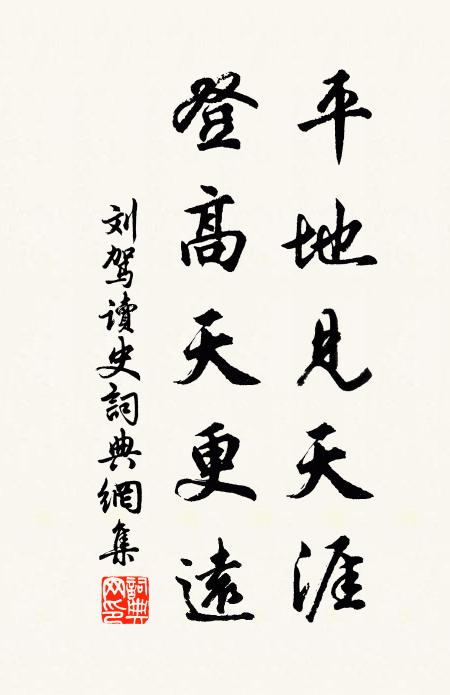 平地見天涯
登高天更遠
刘駕讀史詞典網集
詞典網印